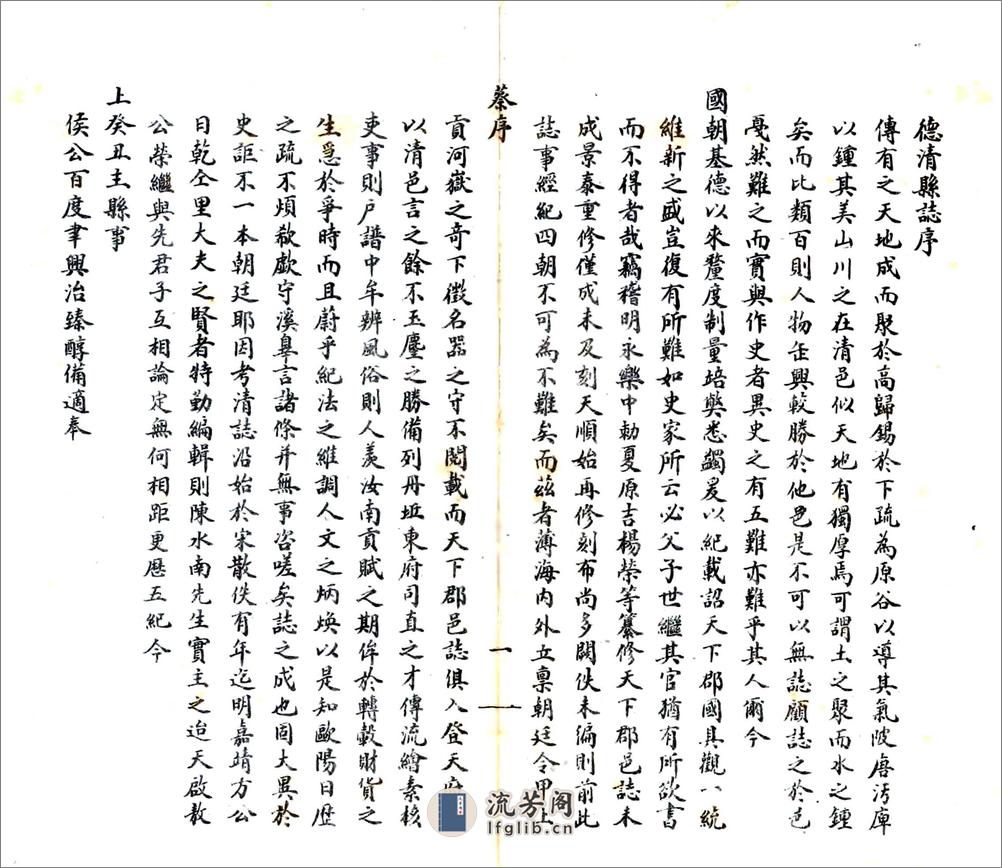 德清縣誌序
傳有之天地成而聚於高歸錫於下疏為原谷以導其氣陂唐汚庳
以鍾其美山川之在清邑似天地有獨厚焉可謂土之聚而水之鍾
矣而比類百則人物缶興較勝於他邑是不可以無誌顧誌之於邑
戞然難之而實與作史者異史之有五難亦難乎其人爾今
國朝基德以來釐度制量培獘悉蠲爰以紀載詔天下郡國具觀八統
維新之盛豈復有所難如史家所云必父子世繼其官猶有所欲書
而不得者哉竊稽明永樂中勅夏原吉楊榮等纂修天下郡邑誌未
成景泰重修僅成未及刻天順始再修刻布尚多闕佚未編則前此
誌事經紀四朝不可為不難矣而茲者薄海内外立稟朝廷令甲上
蔡序
一
貢河嶽之奇下徵名器之守不閱載而天下郡邑誌俱入登天府
以清邑言之餘不玉塵之勝備列丹坵東府司直之才傳流繪素核
吏事則户譜中牟辨風俗則人羨汝南貢賦之期侔於轉轂財貨之
生寬於爭時而且蔚乎紀法之維調人文之炳焕以是知歐陽日歷
之疏不煩欷歔守溪臯言諸條并無事咨嗟矣誌之成也固大異於
史詎不一本朝廷耶因考清誌沿始於宋散佚有年迄明嘉靖方公
日乾仝里大夫之賢者特勤編輯則陳水南先生實主之迨天啟敖
公榮繼與先君子互相論定無何相距更歷五紀今
上癸丑主縣事
侯公百度聿興治臻醇備適奉
流芳阁
lfglib.cn